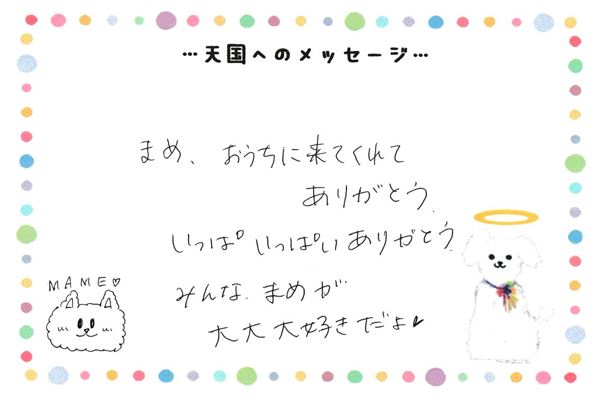 …天国へのメッセージ…
まめ、おうちに来てくれて
ありがとう
いっぱいっぱいありがとう
みんな、まめが
大大大好きだよ♥
MAME♡